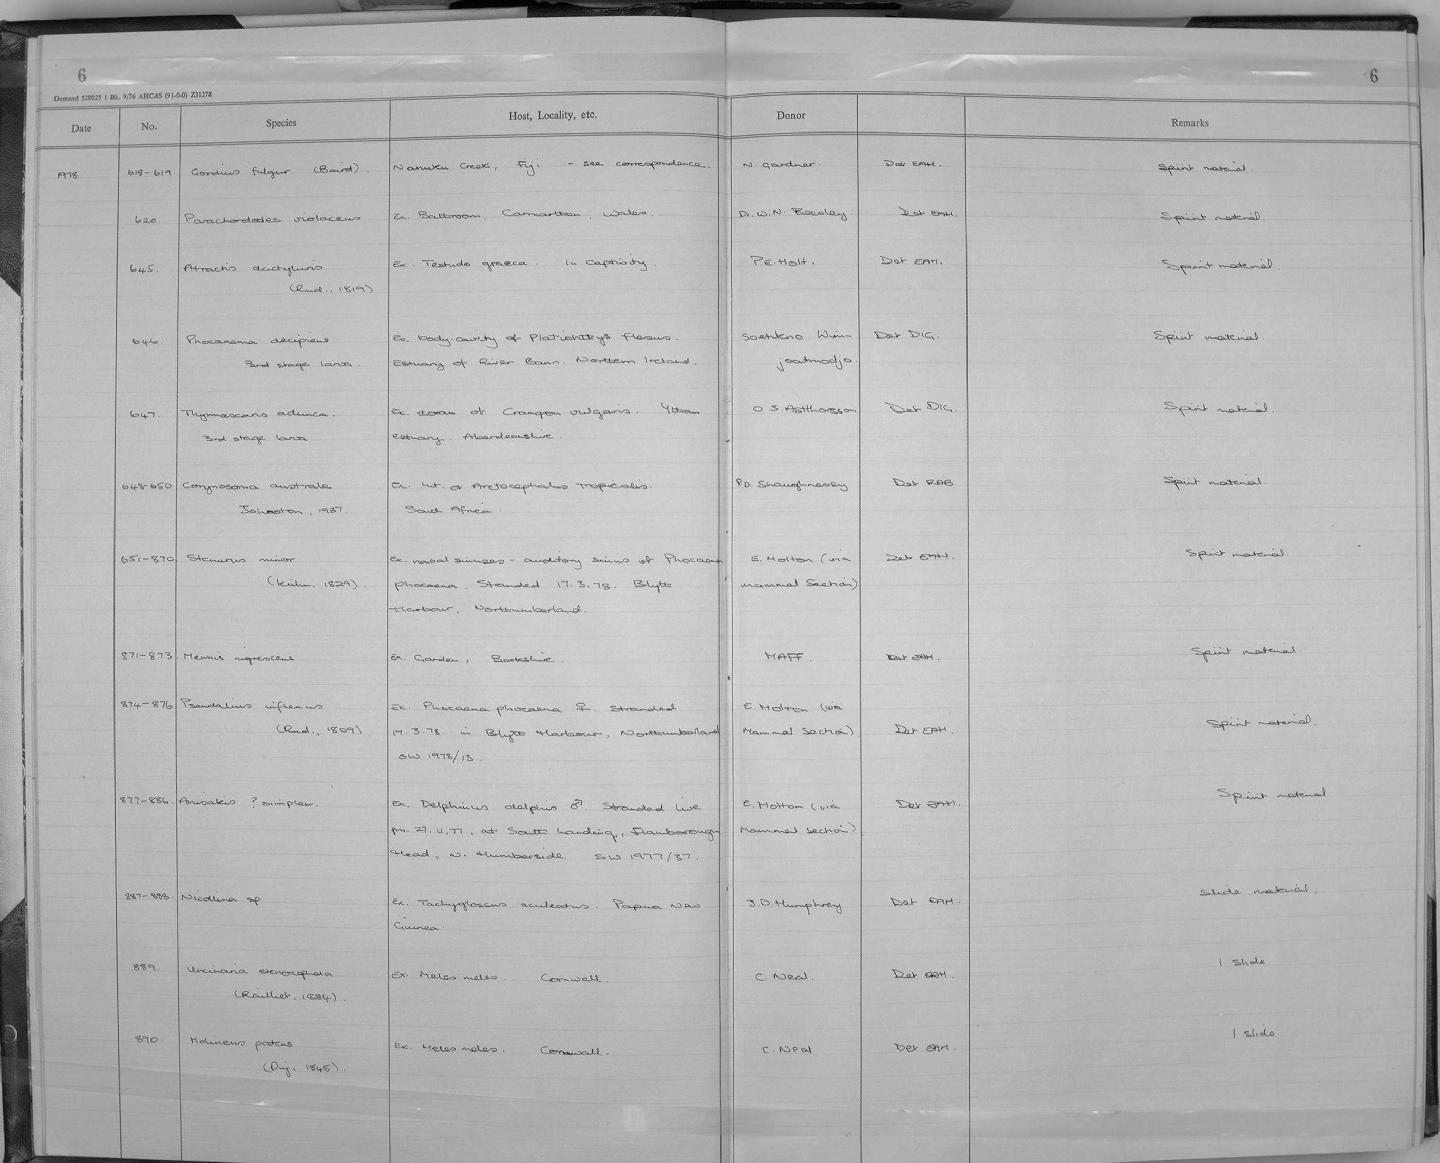 6 6
Demand 528025 1 Bk. 9/76 AHCAS (91-0-0) Z31278
Date No. Species Host, Locality, etc. Donor Remarks
1978 618-619 Gordius fulgur (Baird). Nanuku Creek, Fiji - see correspondence. N. Gardner. Det EAH. Spirit material.
620. Parachordodes violaceus Ex. Bathroom, Camarthen, Wales. Dr. W.N. Beesley Det EAH. Spirit material.
645. Atractis dactyluris Ex. Testudo graeca. In Captivity. P.E. Holt. Det EAH. Spirit material.
(Rud., 1819)
646. Phocanema decipiens Ex. body-cavity of Platichthys flesus. Soetikno Wirn- Det DIG. Spirit material.
3rd stage larva. Estuary of River Bann. Northern Ireland. joatmodjo.
647. Thynnascaris adunca. Ex. of Crangon vulgaris. Ythan O.S. Astthorsson Det DIG. Spirit material.
3rd stage larva estuary. Aberdeenshire.
648-650 Corynosoma australe Ex. int. of Arctocephalus tropicalis. P.D. Shaughnessy Det RAB Spirit material.
Johnston, 1937. South Africa.
651-870 Stenurus minor Ex. nasal sinuses - auditory sinus of Phocaena E. Molton (via Det EAH. Spirit material.
(Kühn, 1829). phocaena. Stranded 17.3.78. Blyth mammal Section)
Harbour, Northumberland.
871-873. Mermis nigrescens Ex. Garden, Berkshire MAFF. Det EAH. Spirit material.
874-876 Pseudalius inflexus Ex. Phocaena phocaena ♀. Stranded E. Molton (via
(Rud., 1809) 17.3.78. in Blyth Harbour, Northumberland Mammal Section) Det EAH. Spirit material.
SW 1978/13.
877-886. Anisakis ? simplex. Ex. Delphinus delphis ♂. Stranded live E. Molton (via Det EAH. Spirit material
pm. at South Landing, Flamborough Mammal Section)
Head, N. Humberside. SW 1977/37.
887-888. Nicollina sp Ex. Tachyglossus aculeatus. Papua New J.D. Humphrey Det EAH. Slide material.
Guinea.
889. Uncinaria stenocephala Ex. Meles meles. Cornwall. C. Neal. Det EAH. 1 slide
(Railliet, 1884).
890. Molineus patens Ex. Meles meles. Cornwall. C. Neal Det EAH. 1 slide
(Duj., 1845).